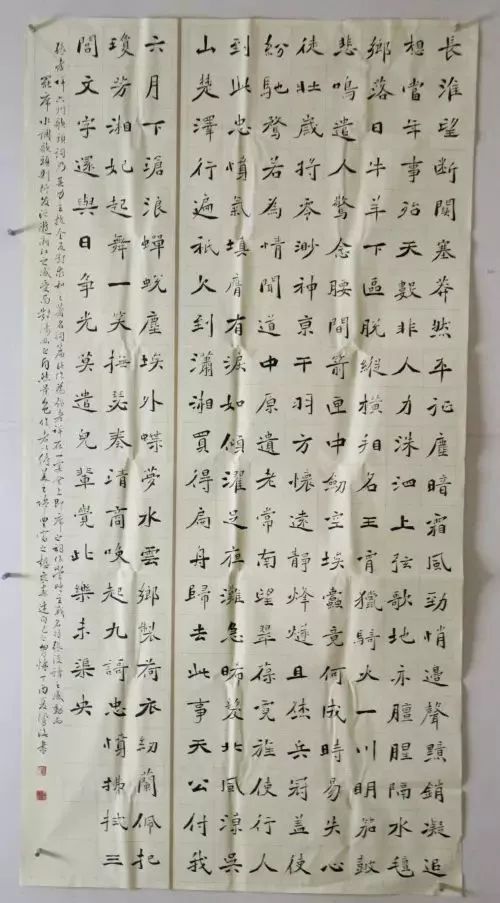 長淮望斷關塞莽然平征塵暗霜風勁悄邊聲黯銷凝追
想當年事殆天數非人力洙泗上弦歌地亦膻腥隔水氈
鄉落日牛羊下區脫縱橫看名王宵獵騎火一川明笳鼓
悲鳴遣人驚念腰間箭匣中劍空埃蠹竟何成時易失心
徒壯歲將零渺神京干羽方懷遠靜烽燧且休兵冠蓋使
紛馳騖若為情聞道中原遺老常南望翠葆霓旌使行人
到此忠憤氣填膺有淚如傾濯足夜灘急晞髮北風涼吳
山楚澤行遍祇欠到瀟湘買得扁舟歸去此事天公付我
六月下滄浪蟬蛻塵埃外蝶夢水雲鄉製荷衣紉蘭佩把
瓊芳湘妃起舞一笑撫瑟奏清商喚起九謌忠憤拂拭三
閭文字還與日爭光莫遣兒輩覺此樂未渠央
張孝祥六州歌頭詞乃
水調歌頭